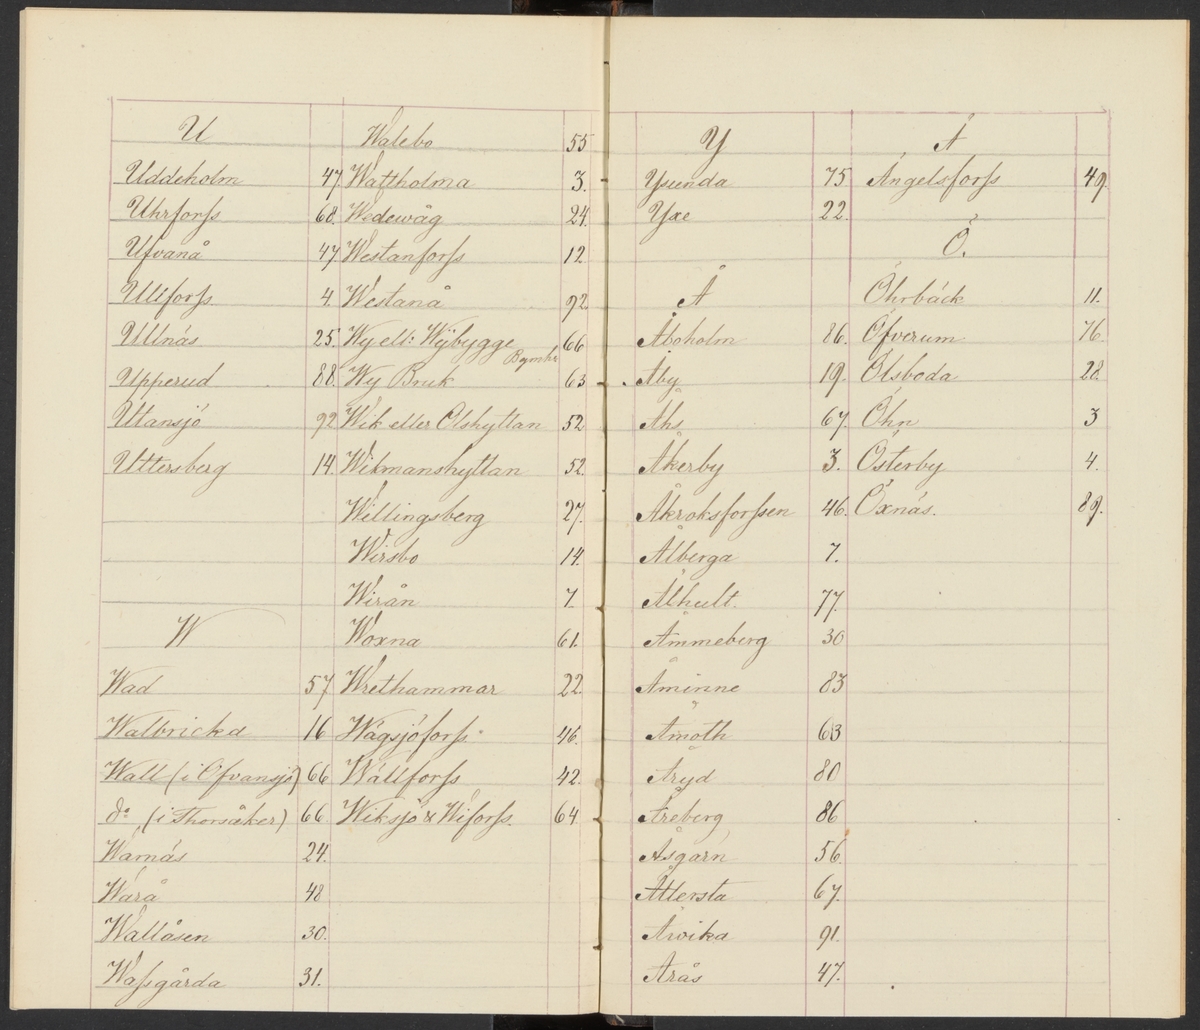 U
Uddeholm 47
Uhrforss 68.
Ufvanå 47
Ullforss 4.
Ullnäs 25.
Upperud 88.
Utansjö 92
Uttersberg 14.
W
Wad 57
Walbricka 16
Wall (i Ofvansjö) 66
do (i Thorsåker) 66.
Warnäs 24.
Warå 48
Wallåsen 30.
Wassgårda 31.
Walebo 55
Wattholma 3.
Wedewåg 24.
Westanforss 12
Westanå 92
Wy ell: Wÿbygge 66
Wy Bruk 63
Wik eller Olshyttan 52
Wikmanshyttan 52.
Willingsberg 27.
Wirsbo 14.
Wirån 7.
Woxna 61.
Wrethammar 22.
Wågsjöforss 46.
Wällforss 42.
Wiksjö & Wiforss. 64
Y
Yxenda 75
Yxe 22.
Å
Åboholm 86.
Åby 19.
Åhs 67.
Åkerby 3.
Åkroksforssen 46.
Ålberga 7.
Ålhult. 77.
Åmmeberg 30
Åminne 83
Åmoth 63
Åryd 80
Åreberg 86
Åsgarn 56.
Åttersta 67.
Årvika 91.
Årås 47.
Ä
Ängelsforss 49.
Ö.
Öhrbäck 11.
Öfverum 76.
Ölsboda 28.
Öhn 3
Österby 4.
Öxnäs. 89.